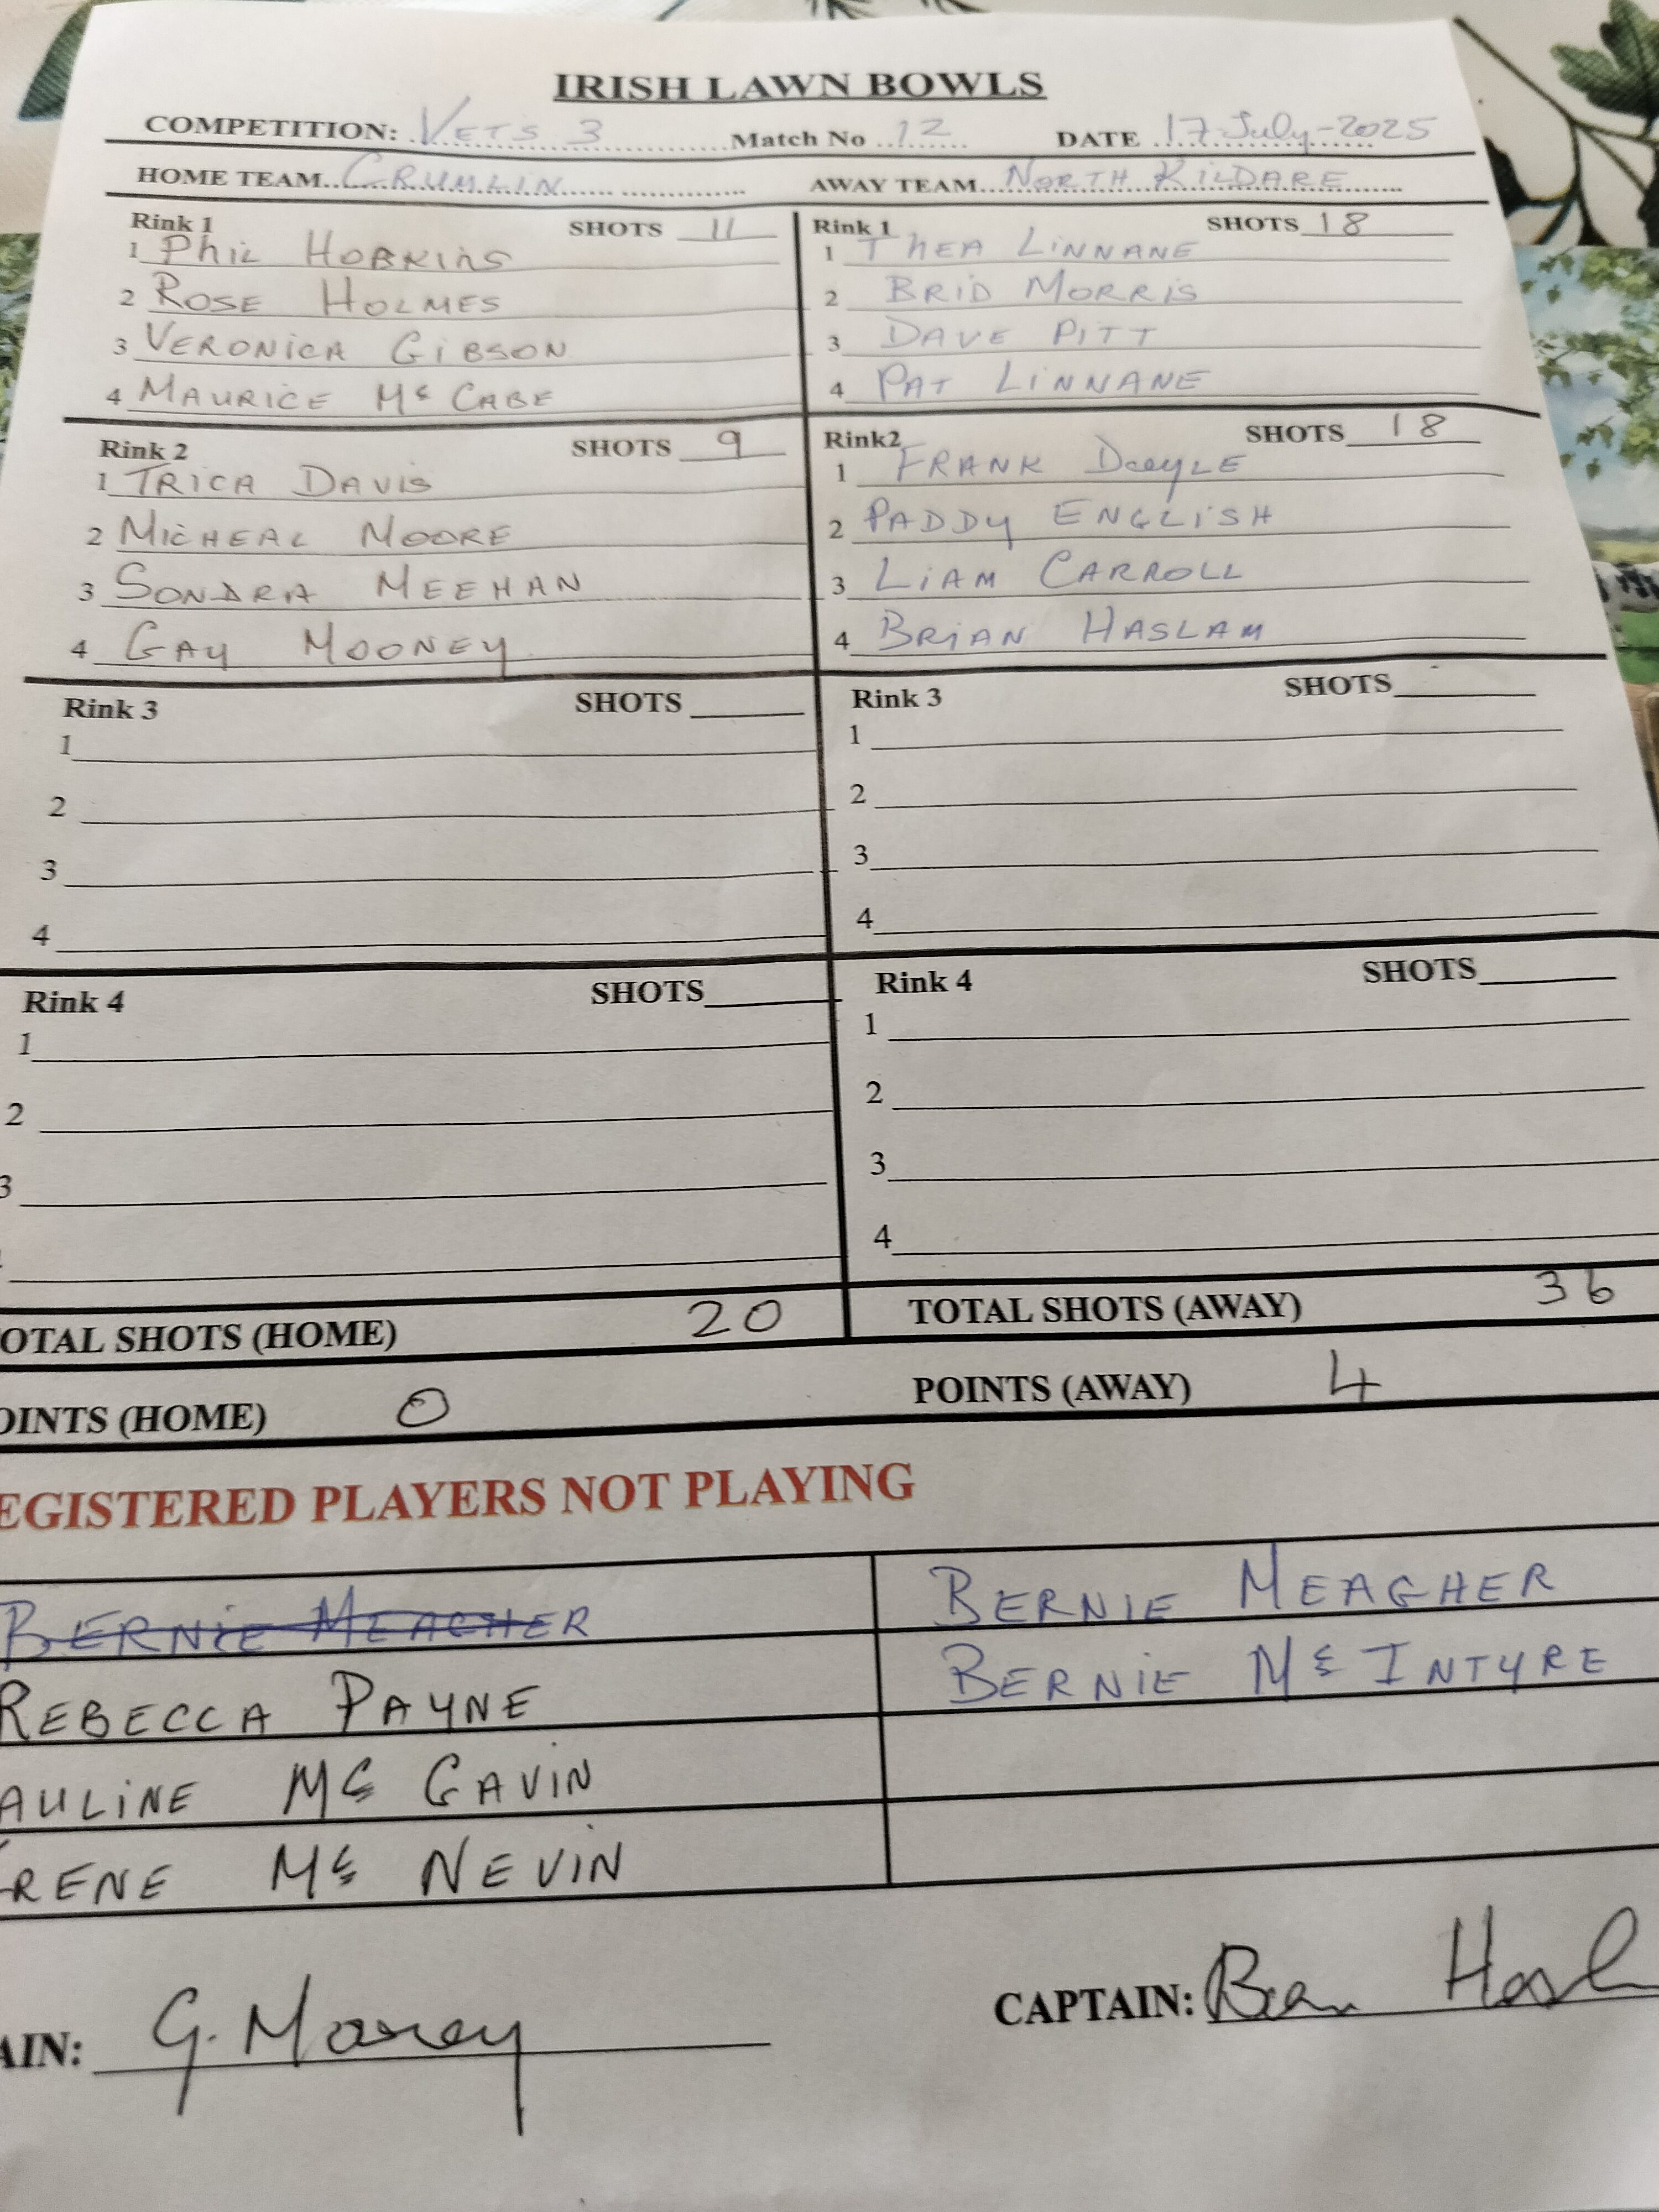 IRISH LAWN BOWLS
COMPETITION: VETS 3 Match No 12 DATE 17-July-2025
HOME TEAM CRUMLIN AWAY TEAM NORTH KILDARE
Rink 1 SHOTS 11
1 PHIL HOBKINS
2 ROSE HOLMES
3 VERONICA GIBSON
4 MAURICE Mc CABE
Rink 1 SHOTS 18
1 THEA LINNANE
2 BRID MORRIS
3 DAVE PITT
4 PAT LINNANE
Rink 2 SHOTS 9
1 TRICA DAVIS
2 MICHEAL MOORE
3 SONDRA MEEHAN
4 GAY MOONEY
Rink2 SHOTS 18
1 FRANK DOOYLE
2 PADDY ENGLISH
3 LIAM CARROLL
4 BRIAN HASLAM
Rink 3 SHOTS
1
2
3
4
Rink 3 SHOTS
1
2
3
4
Rink 4 SHOTS
1
2
3
Rink 4 SHOTS
1
2
3
4
OTAL SHOTS (HOME) 20
TOTAL SHOTS (AWAY) 36
OINTS (HOME) 0
POINTS (AWAY) 4
EGISTERED PLAYERS NOT PLAYING
BERNIE MEAGHER
REBECCA PAYNE
AULINE Mc GAVIN
IRENE Mc NEVIN
BERNIE MEAGHER
BERNIE Mc INTYRE
AIN: G. Mooney
CAPTAIN: Brian Hasl